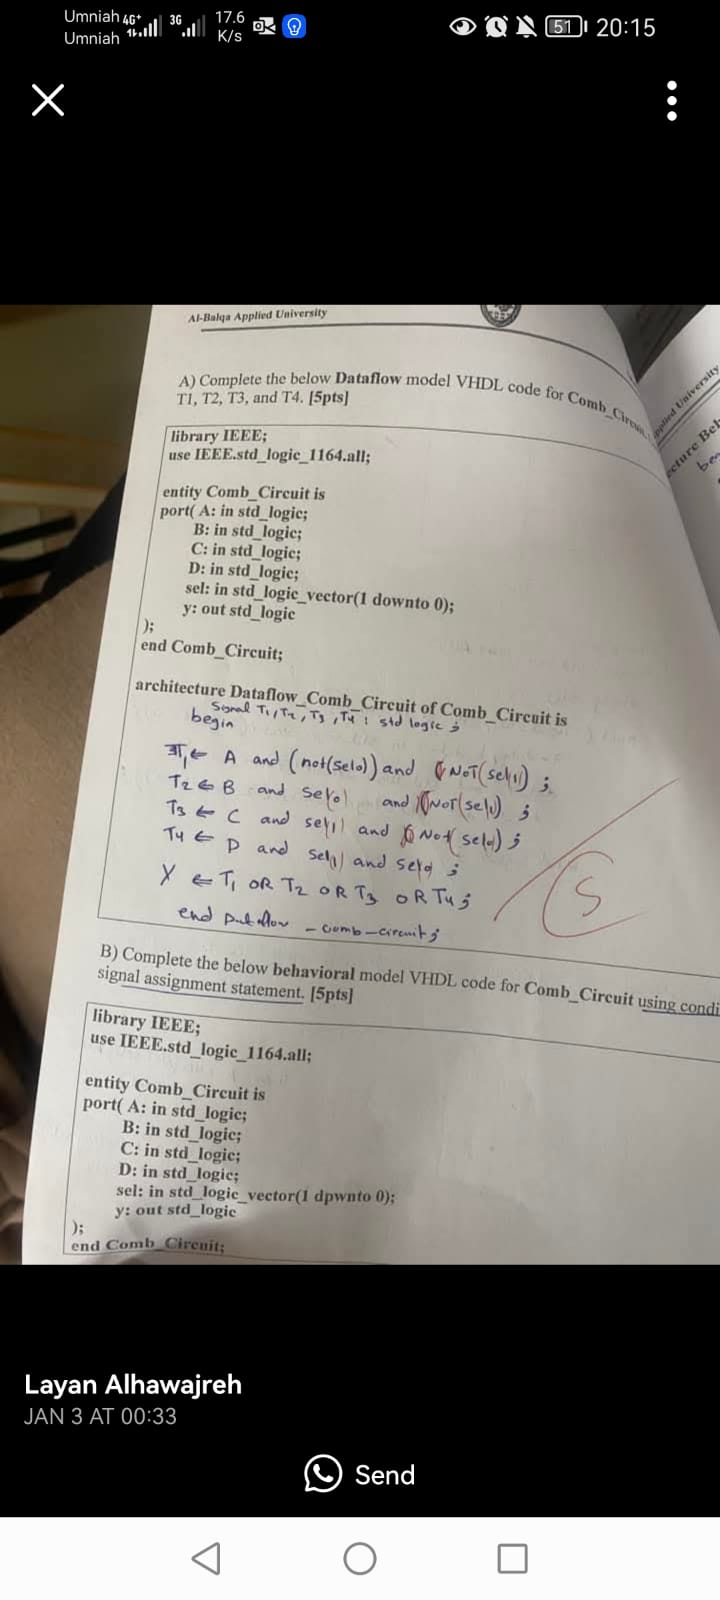 Umniah 4G+ 3G 17.6 51 20:15
Umniah K/s
Al-Balqa Applied University
A) Complete the below Dataflow model VHDL code for Comb_Circuit,
T1, T2, T3, and T4. [5pts]
library IEEE;
use IEEE.std_logic_1164.all;
entity Comb_Circuit is
port( A: in std_logic;
B: in std_logic;
C: in std_logic;
D: in std_logic;
sel: in std_logic_vector(1 downto 0);
y: out std_logic
);
end Comb_Circuit;
architecture Dataflow_Comb_Circuit of Comb_Circuit is
Signal T1, T2, T3, T4 : std logic ;
begin
T1 <= A and (not(sel0)) and (NOT(sel1)) ;
T2 <= B and sel0 and (NOT(sel1)) ;
T3 <= C and sel1 and (Not(sel0)) ;
T4 <= D and sel1 and sel0 ;
Y <= T1 OR T2 OR T3 OR T4 ;
end - comb - circuit ;
5
B) Complete the below behavioral model VHDL code for Comb_Circuit using condi
signal assignment statement. [5pts]
library IEEE;
use IEEE.std_logic_1164.all;
entity Comb_Circuit is
port( A: in std_logic;
B: in std_logic;
C: in std_logic;
D: in std_logic;
sel: in std_logic_vector(1 dpwnto 0);
y: out std_logic
);
end Comb_Circuit;
pplied University
ecture Beh
be
Layan Alhawajreh
JAN 3 AT 00:33
Send